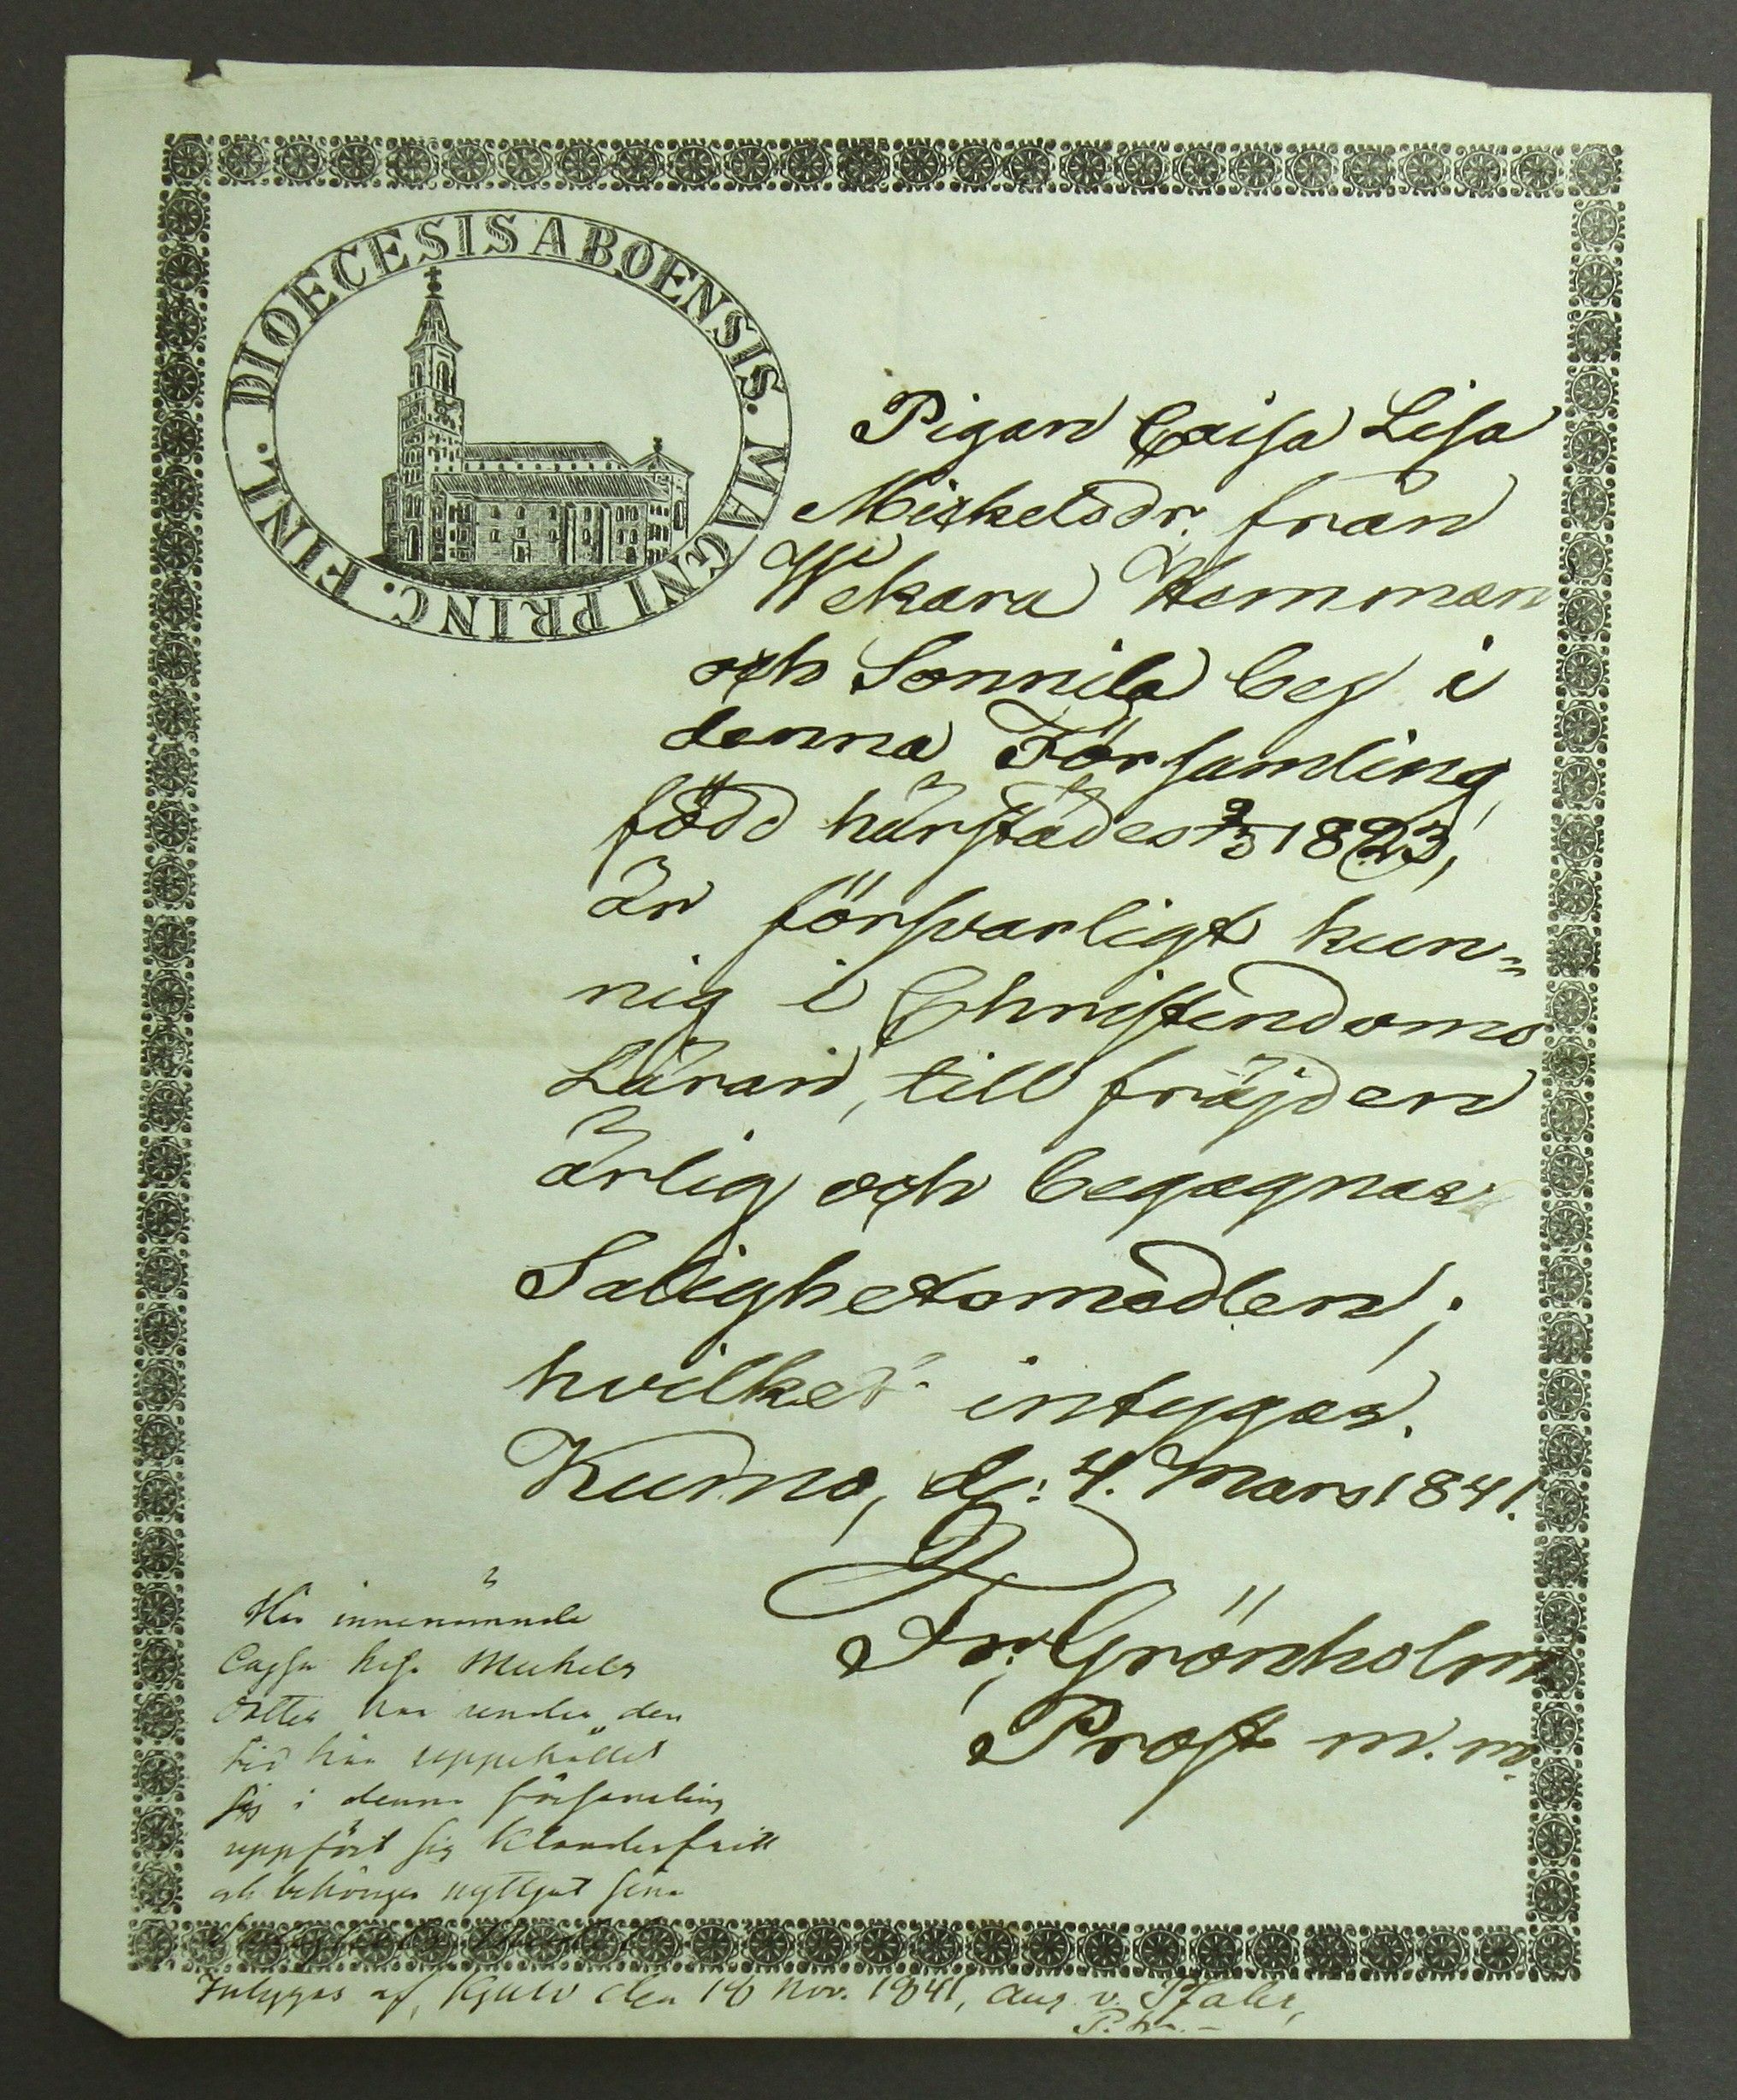 DIOECESIS ABOENSIS. MAGNI PRINC. FINL.
Pigan Caisa Lisa
Mickelsdr. från
Wekara Hemman
och Sonnila bes i
denna Församling,
född härstädes 9/5 1823,
är försvarligt kun=
nig i Christendoms
Läran, till fräjden
ärlig och begagnar
Salighetsmedlen;
hvilket intygas.
Kumo, d: 4. Mars 1841.
Fr: Grönholm
Prost m. m.
innenämnde
Caysa Lisa Mickels
dotter har under den
tid hon uppehållet
sig i denna församling
uppfört sig klanderfritt
och behörigen nyttjat sina
Intygas af, Kjulo den 18 Nov. 1841, Aug. v.